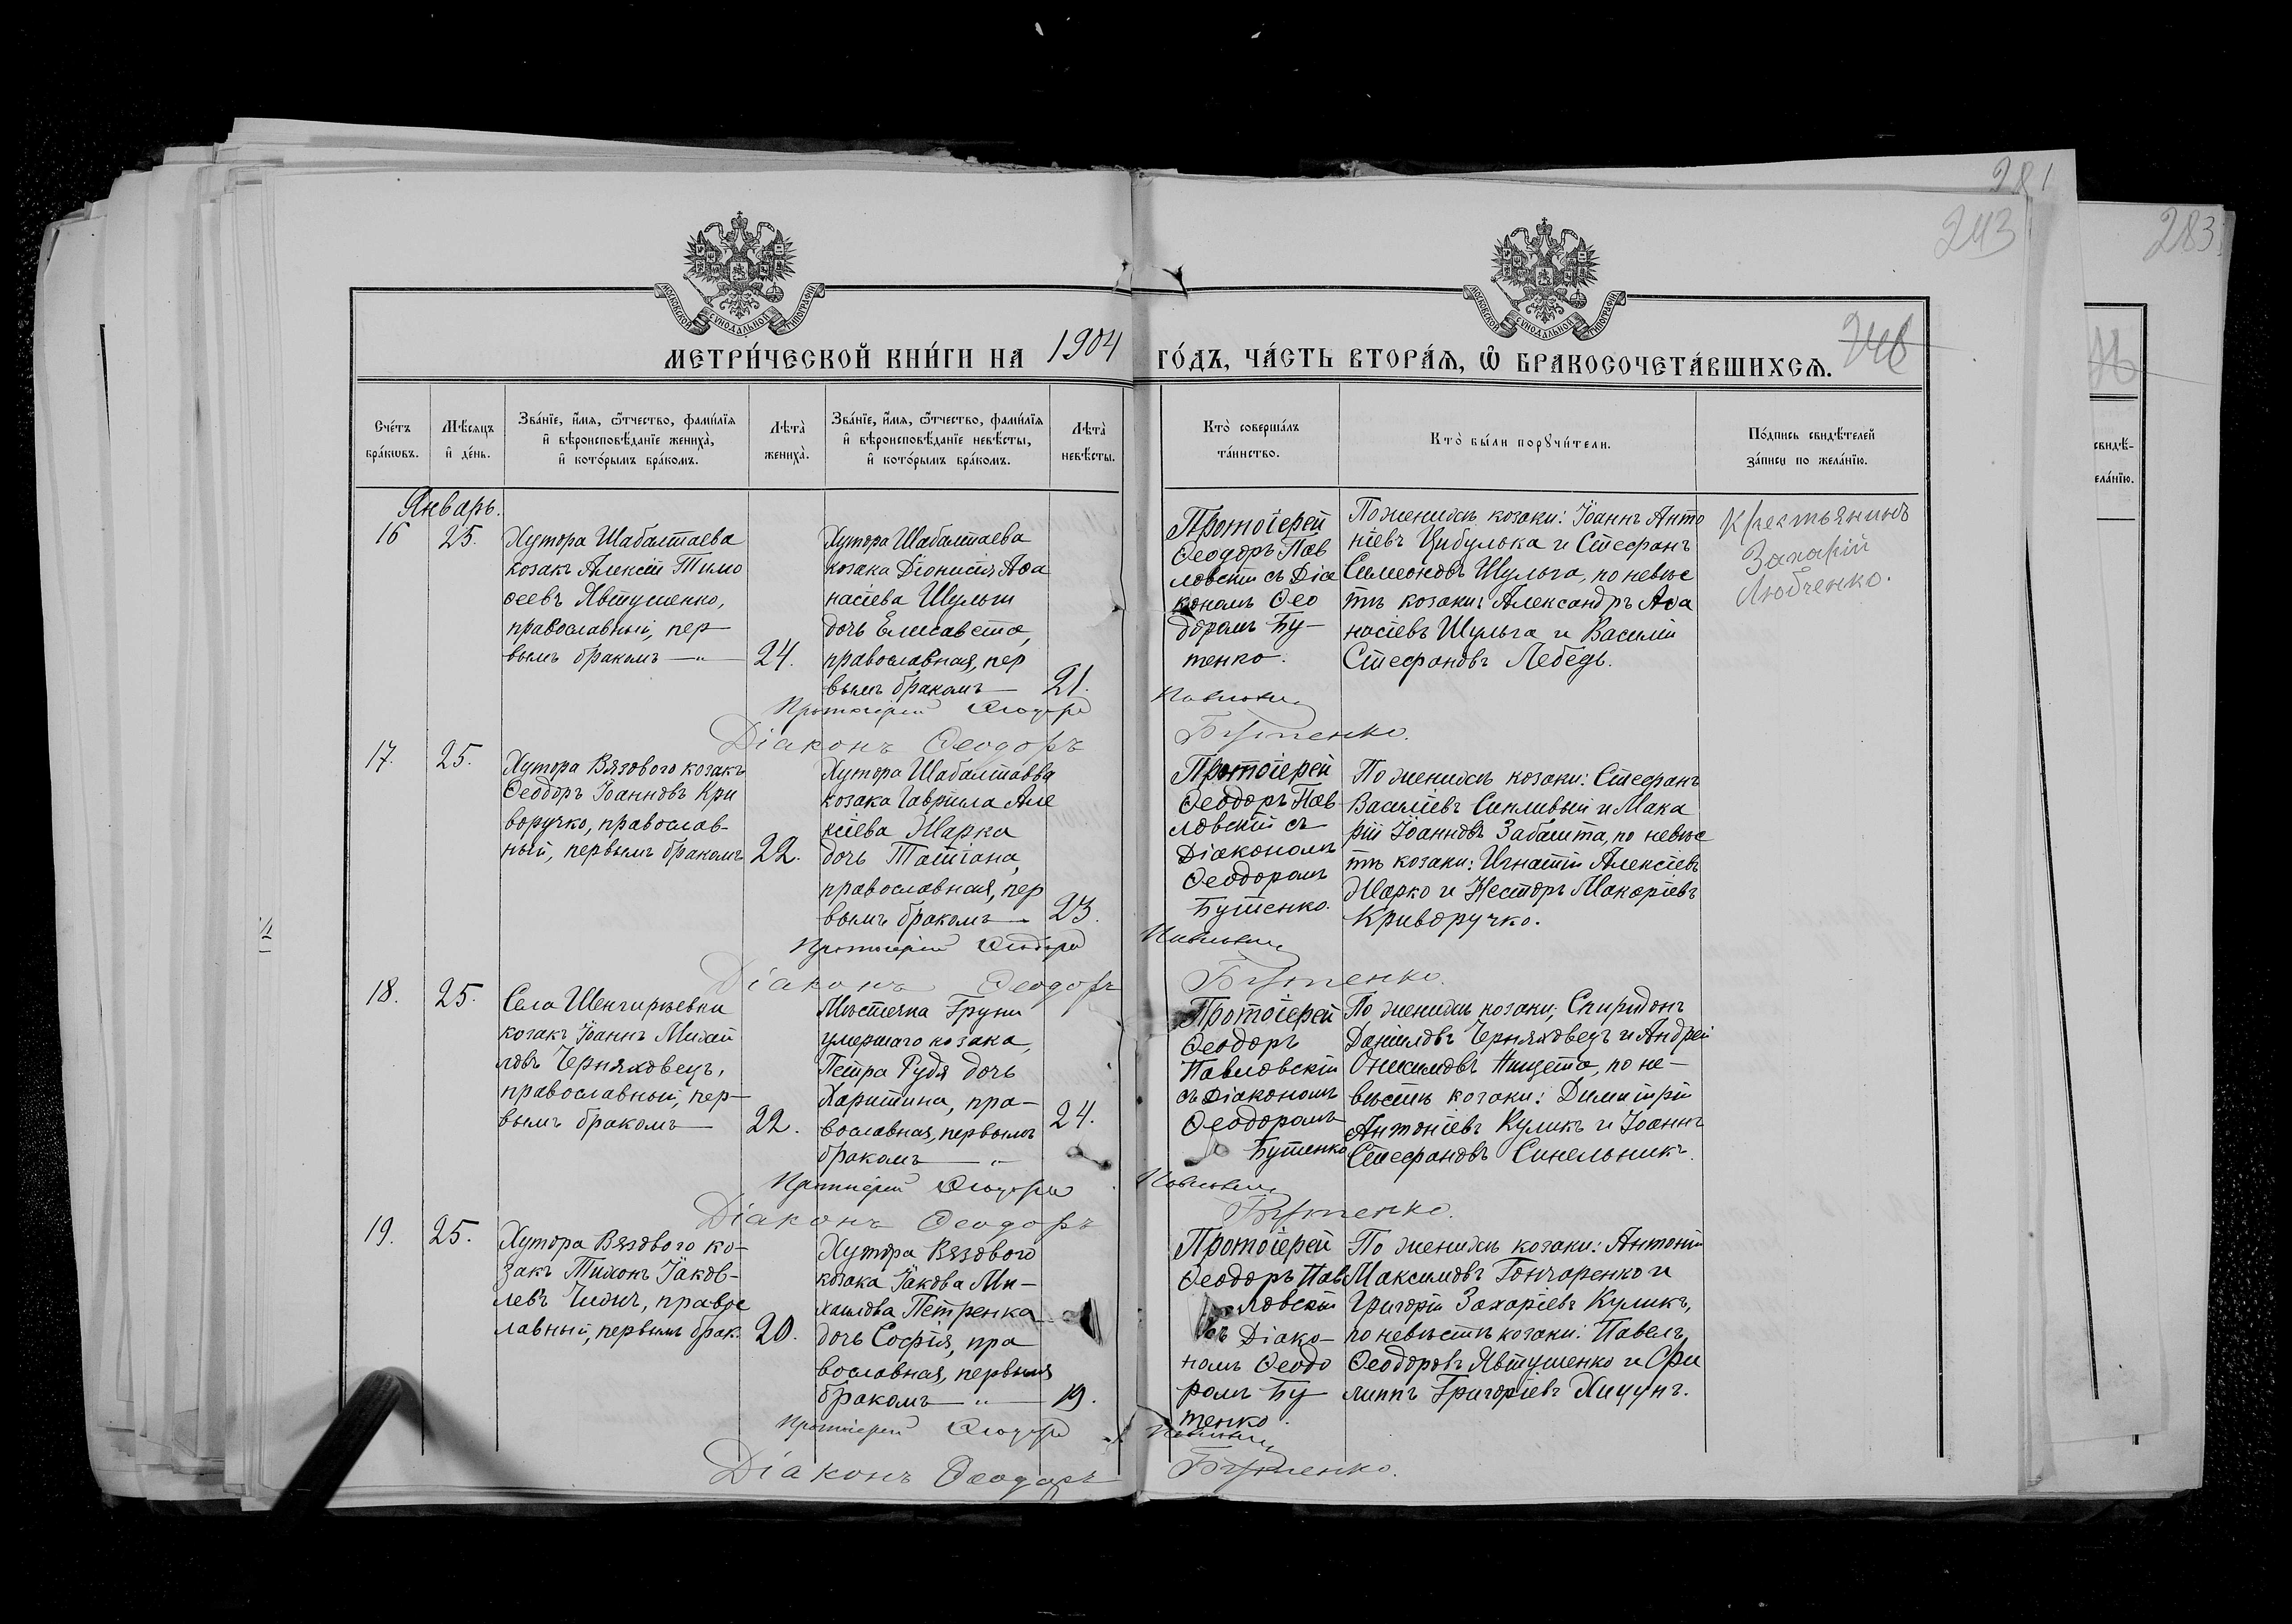 281
243
283
МОСКОВСКОЙ СѴНОДАЛЬНОЙ ТИПОГРАФІИ
МОСКОВСКОЙ СѴНОДАЛЬНОЙ ТИПОГРАФІИ
МЕТРИ́ЧЕСКОЙ КНИ́ГИ НА 1904 ГО́ДЪ, ЧА́СТЬ ВТОРА́Ѧ, Ѽ БРАКОСОЧЕТА́ВШИХСѦ.
Сче́тъ бра́кѡвъ.
Мѣ́сѧцъ и҆ де́нь.
Зва́нїе, и҆́мѧ, ѻ҆́тчество, фами́лїѧ и҆ вѣроисповѣ́данїе жениха̀, и҆ кото́рымъ бра́комъ.
Лѣта̀ жениха̀.
Зва́нїе, и҆́мѧ, ѻ҆́тчество, фами́лїѧ и҆ вѣроисповѣ́данїе невѣ́сты, и҆ кото́рымъ бра́комъ.
Лѣта̀ невѣ́сты.
Кто̀ соверша́лъ та́инство.
Кто̀ бы́ли порꙋчи́тели.
По́дпись свидѣ́телей за́писи по жела́нїю.
свидѣ́-
ела́нїю.
Январь.
16
25.
Хутора Шабалтаева
козакъ Алексій Тимо
ѳеевъ Явтушенко,
православный, пер-
вымъ бракомъ —"—
24.
Хутора Шабалтаева
козака Діонисія Аѳа
насіева Шульги
дочь Елисавета,
православная, пер
вымъ бракомъ —
21.
Протоіерей
Ѳеодоръ Пав
ловскій съ Діа
кономъ Ѳео
доромъ Бу-
тенко.
По женихѣ козаки: Іоаннъ Анто
ніевъ Цибулька и Стефанъ
Симеоновъ Шульга, по невѣс
тѣ козаки: Александръ Аѳа
насіевъ Шульга и Василій
Стефановъ Лебедь.
Крестьянинъ
Захарій
Любченко.
Протоіерей Ѳеодоръ Павловскій
Діаконъ Ѳеодоръ Бутенко.
17.
25.
Хутора Вязового козакъ
Ѳеодоръ Іоанновъ Кри
воручко, православ-
ный, первымъ бракомъ
22.
Хутора Шабалтаева
козака Гавріила Але
ксіева Жарка
дочь Татіана,
православная, пер
вымъ бракомъ —
23.
Протоіерей
Ѳеодоръ Пав
ловскій съ
Діакономъ
Ѳеодоромъ
Бутенко.
По женихѣ козаки: Стефанъ
Василіевъ Сипливый и Мака
рій Іоанновъ Забашта, по невѣс
тѣ козаки: Игнатій Алексіевъ
Жарко и Несторъ Макаріевъ
Криворучко.
Протоіерей Ѳеодоръ Павловскій
Діаконъ Ѳеодоръ Бутенко.
18.
25.
Села Шенгиріевки
козакъ Іоаннъ Михаи
ловъ Черняховецъ,
православный, пер-
вымъ бракомъ —
22.
Мѣстечка Груни
умершаго козака,
Петра Рудя дочь
Харитина, пра-
вославная, первымъ
бракомъ —"—
24.
Протоіерей
Ѳеодоръ
Павловскій
съ Діакономъ
Ѳеодоромъ
Бутенко
По женихѣ козаки; Спиридонъ
Даніиловъ Черняховецъ и Андрей
Онисимовъ Нищета, по не-
вѣстѣ козаки: Димитрій
Антоніевъ Куликъ и Іоаннъ
Стефановъ Синельникъ.
Протоіерей Ѳеодоръ Павловскій
Діаконъ Ѳеодоръ Бутенко.
19.
25.
Хутора Вязового ко-
закъ Тихонъ Іаков-
левъ Чихич, правос
лавный, первымъ брак.
20.
Хутора Вязового
козака Іакова Ми-
хаилова Петренка
дочь Софія, пра
вославная, первымъ
бракомъ —"—
19.
Протоіерей
Ѳеодоръ Пав
ловскій
съ Діако-
номъ Ѳеодо
ромъ Бу
тенко.
По женихѣ козаки: Антоній
Максимовъ Гончаренко и
Григорій Захаріевъ Куликъ,
по невѣстѣ козаки: Павелъ,
Ѳеодоровъ Явтушенко и Фи
липпъ Григоріевъ Хицунъ.
Протоіерей Ѳеодоръ Павловскій
Діаконъ Ѳеодоръ Бутенко.